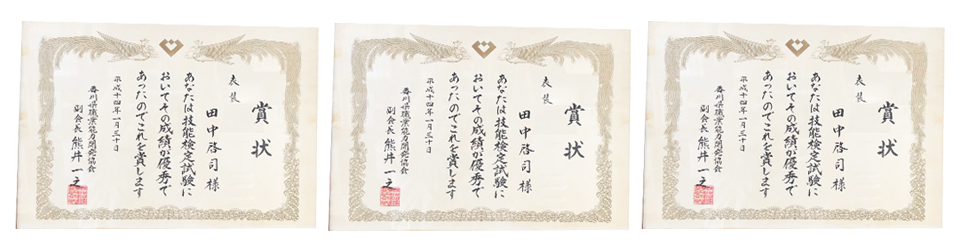 賞状
表装
田中啓司様
あなたは技能検定試験に
おいてその成績が優秀で
あったのでこれを賞します
平成十四年一月三十日
香川県職業能力開発協会
副会長 熊井一之
賞状
表装
田中啓司様
あなたは技能検定試験に
おいてその成績が優秀で
あったのでこれを賞します
平成十四年一月三十日
香川県職業能力開発協会
副会長 熊井一之
賞状
表装
田中啓司様
あなたは技能検定試験に
おいてその成績が優秀で
あったのでこれを賞します
平成十四年一月三十日
香川県職業能力開発協会
副会長 熊井一之